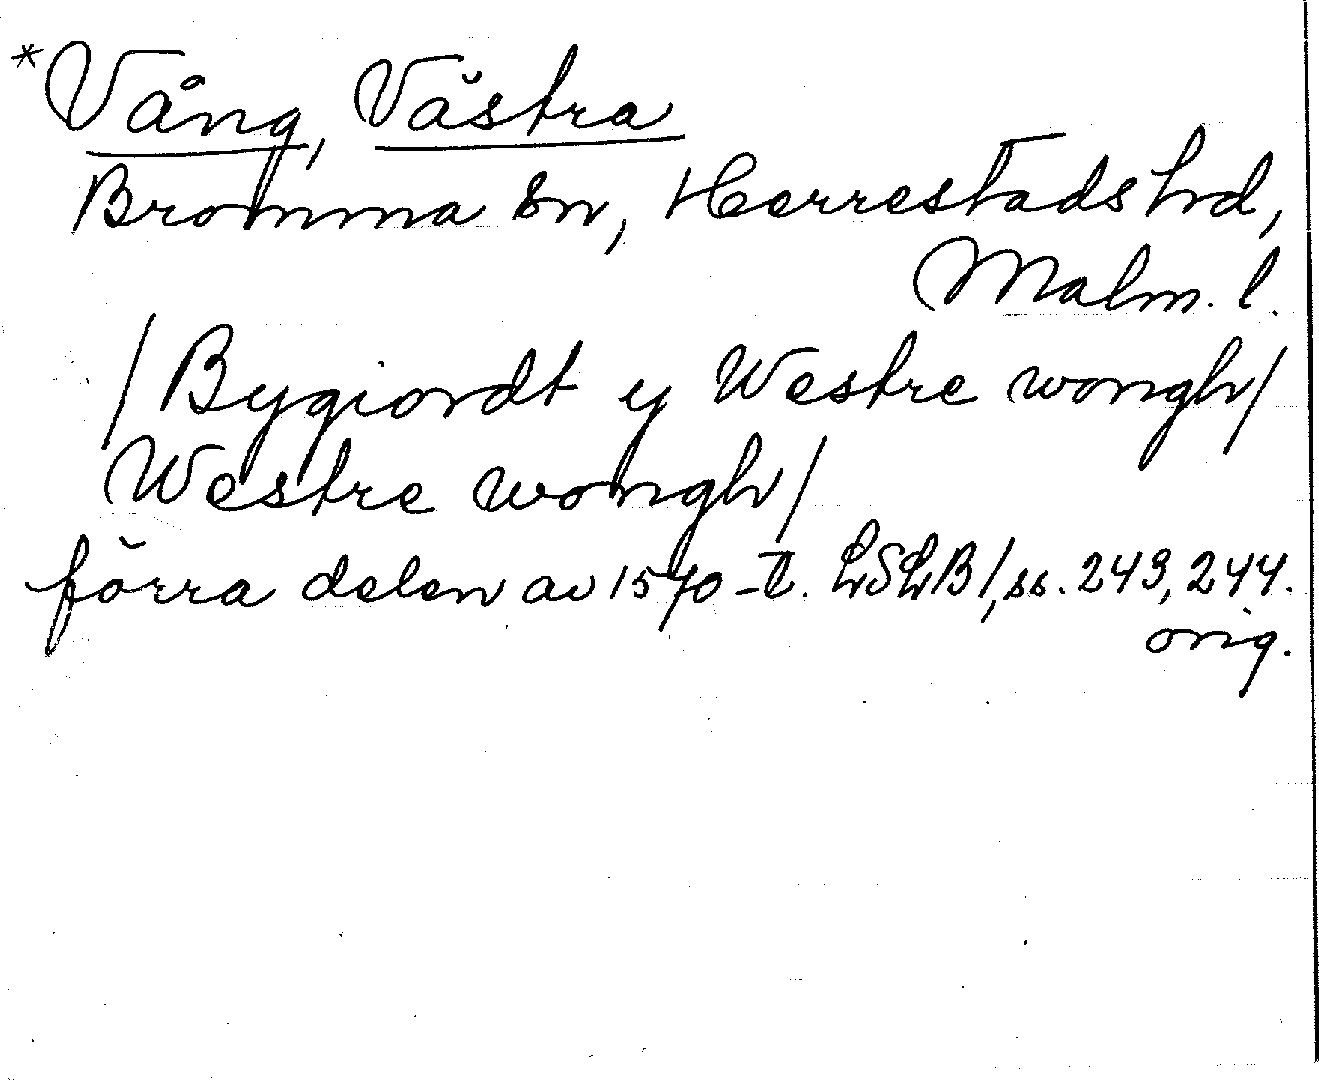 *Vång, Västra
Bromma sn, Herrestads hd,
Malm. l.
/Bygiordt y Westre wongh/
Westre wongh/
förra delen av 1570-t. LSLB/, ss. 243, 244.
orig.